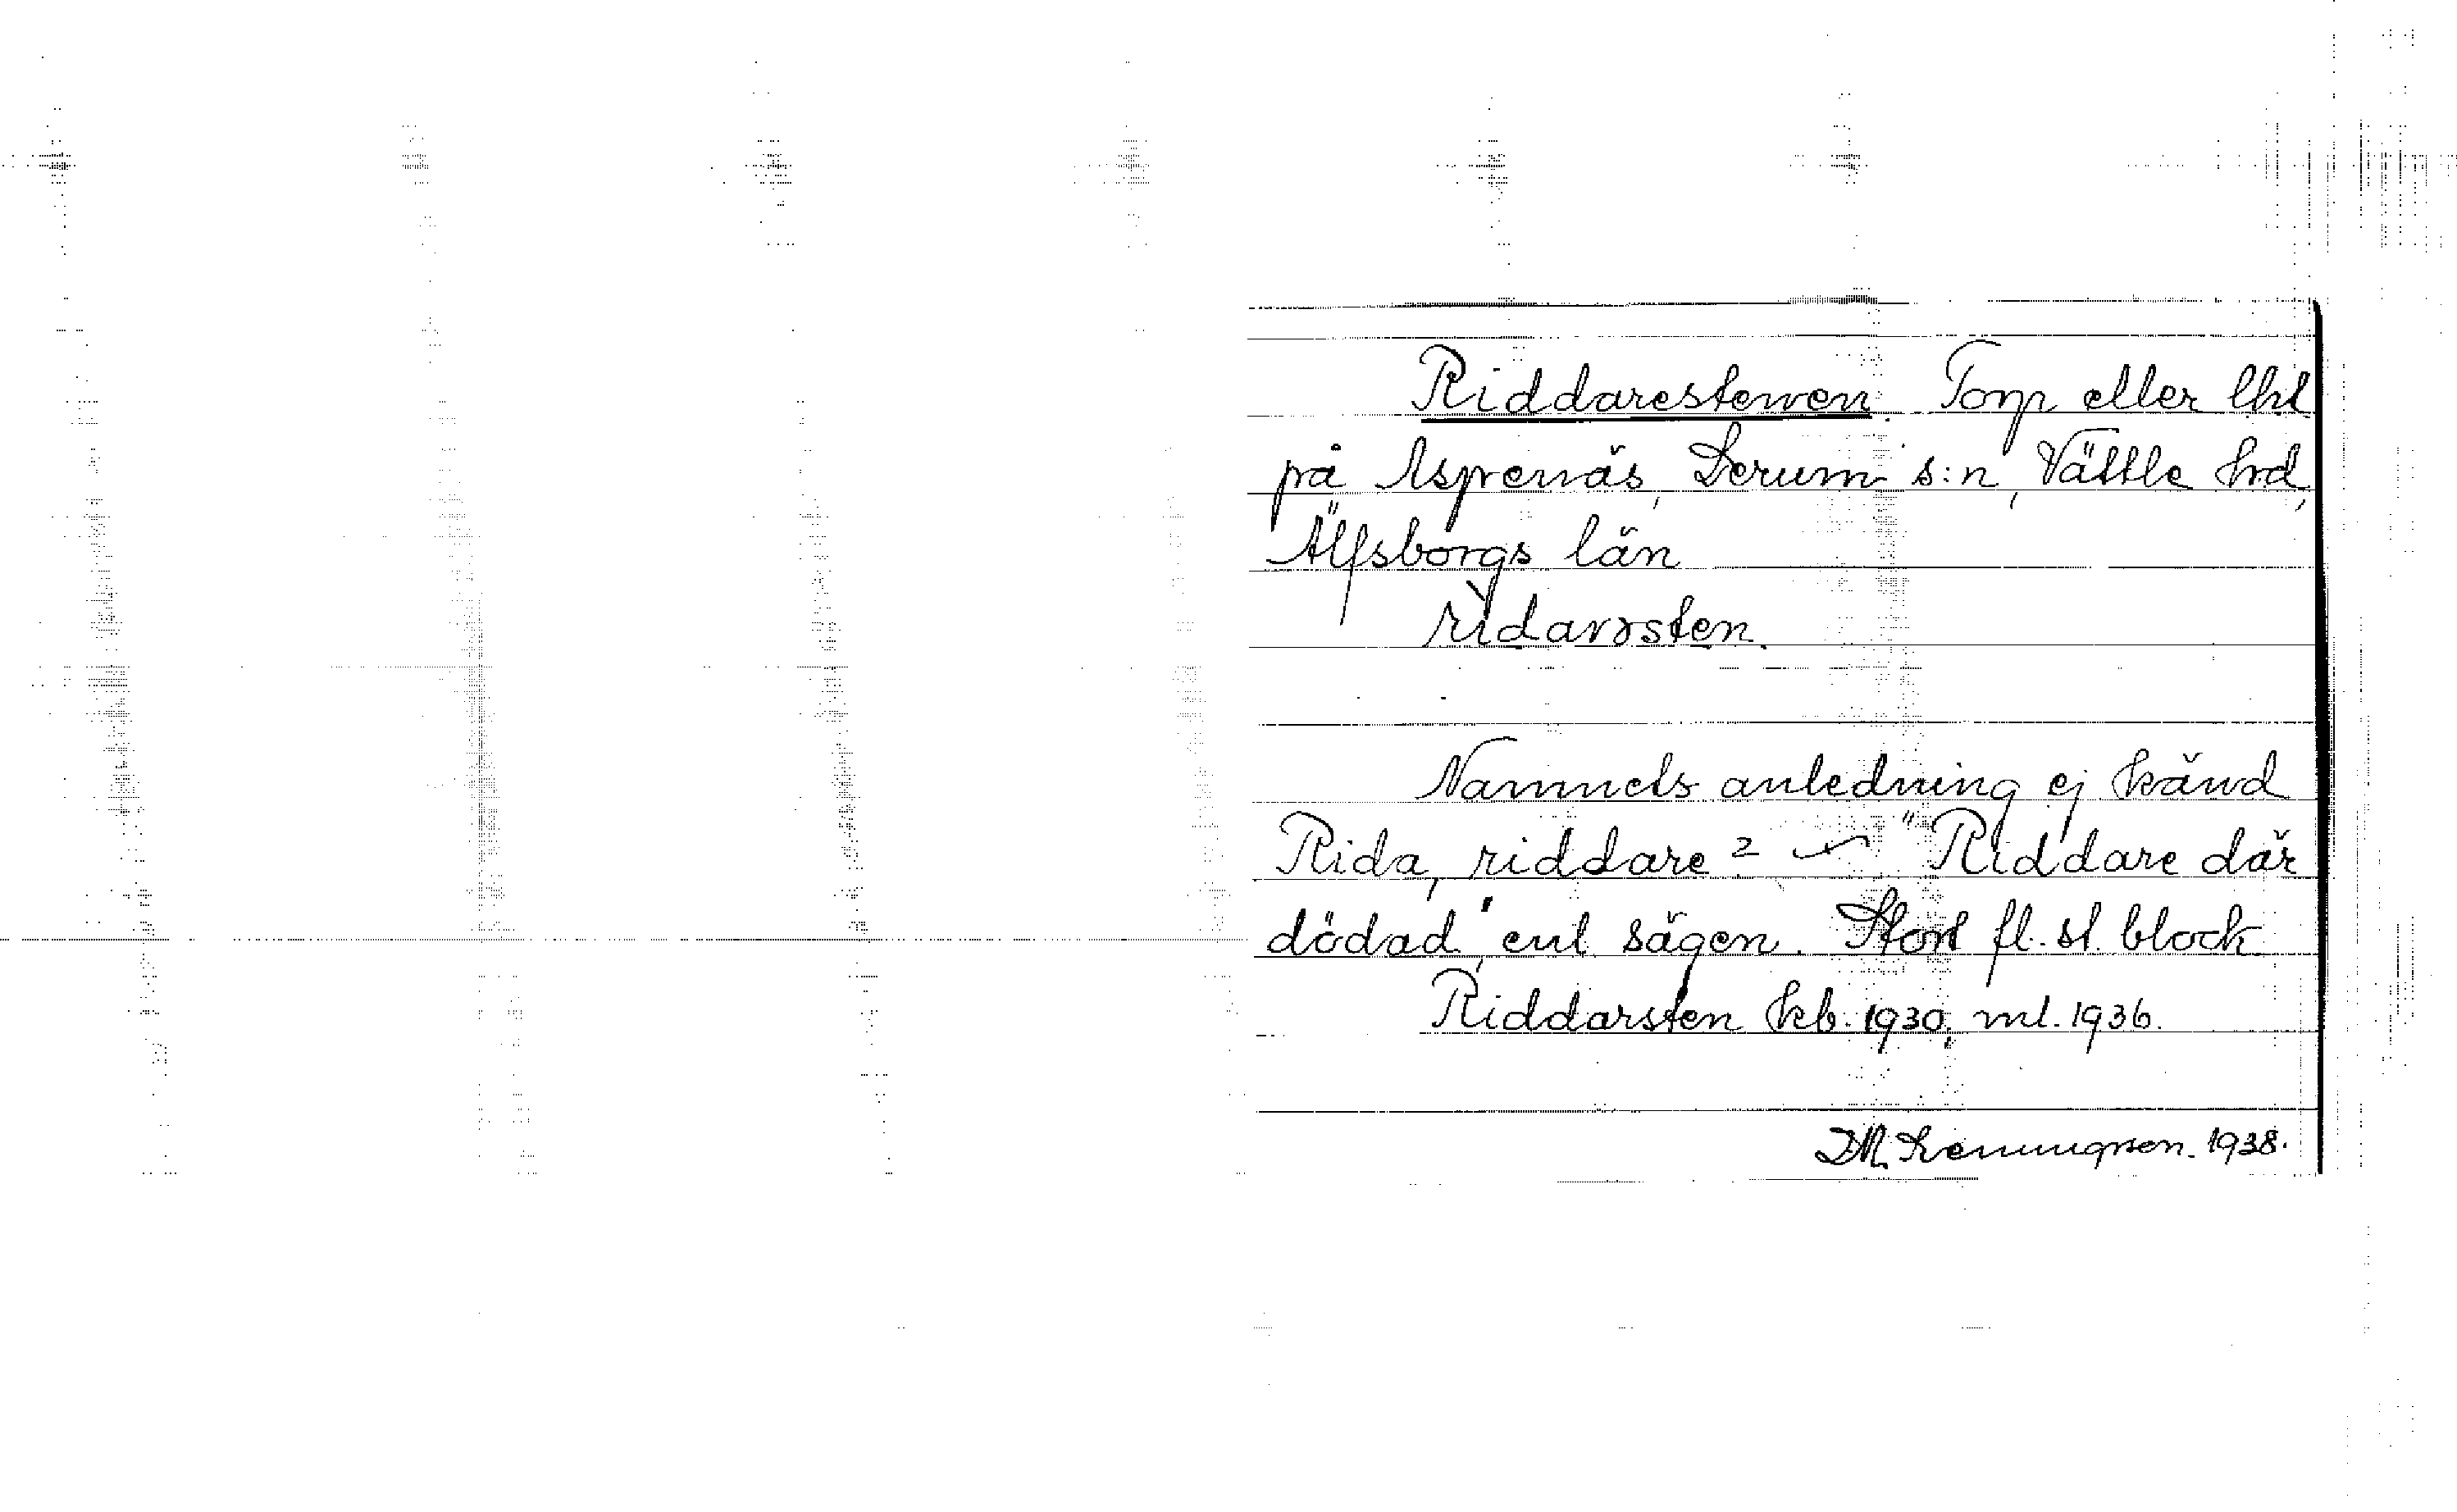 Riddarestenen. Torp eller lht
på Aspenäs, Lerum s:n, Vättle hd,
Älfsborgs län
rìdarɤsten.
Namnets anledning ej känd
Rida, riddare? "Riddare där
dödad", enl. sägen. Stort fl. st. block
Riddarsten kb. 1930, ml. 1936.
1938.